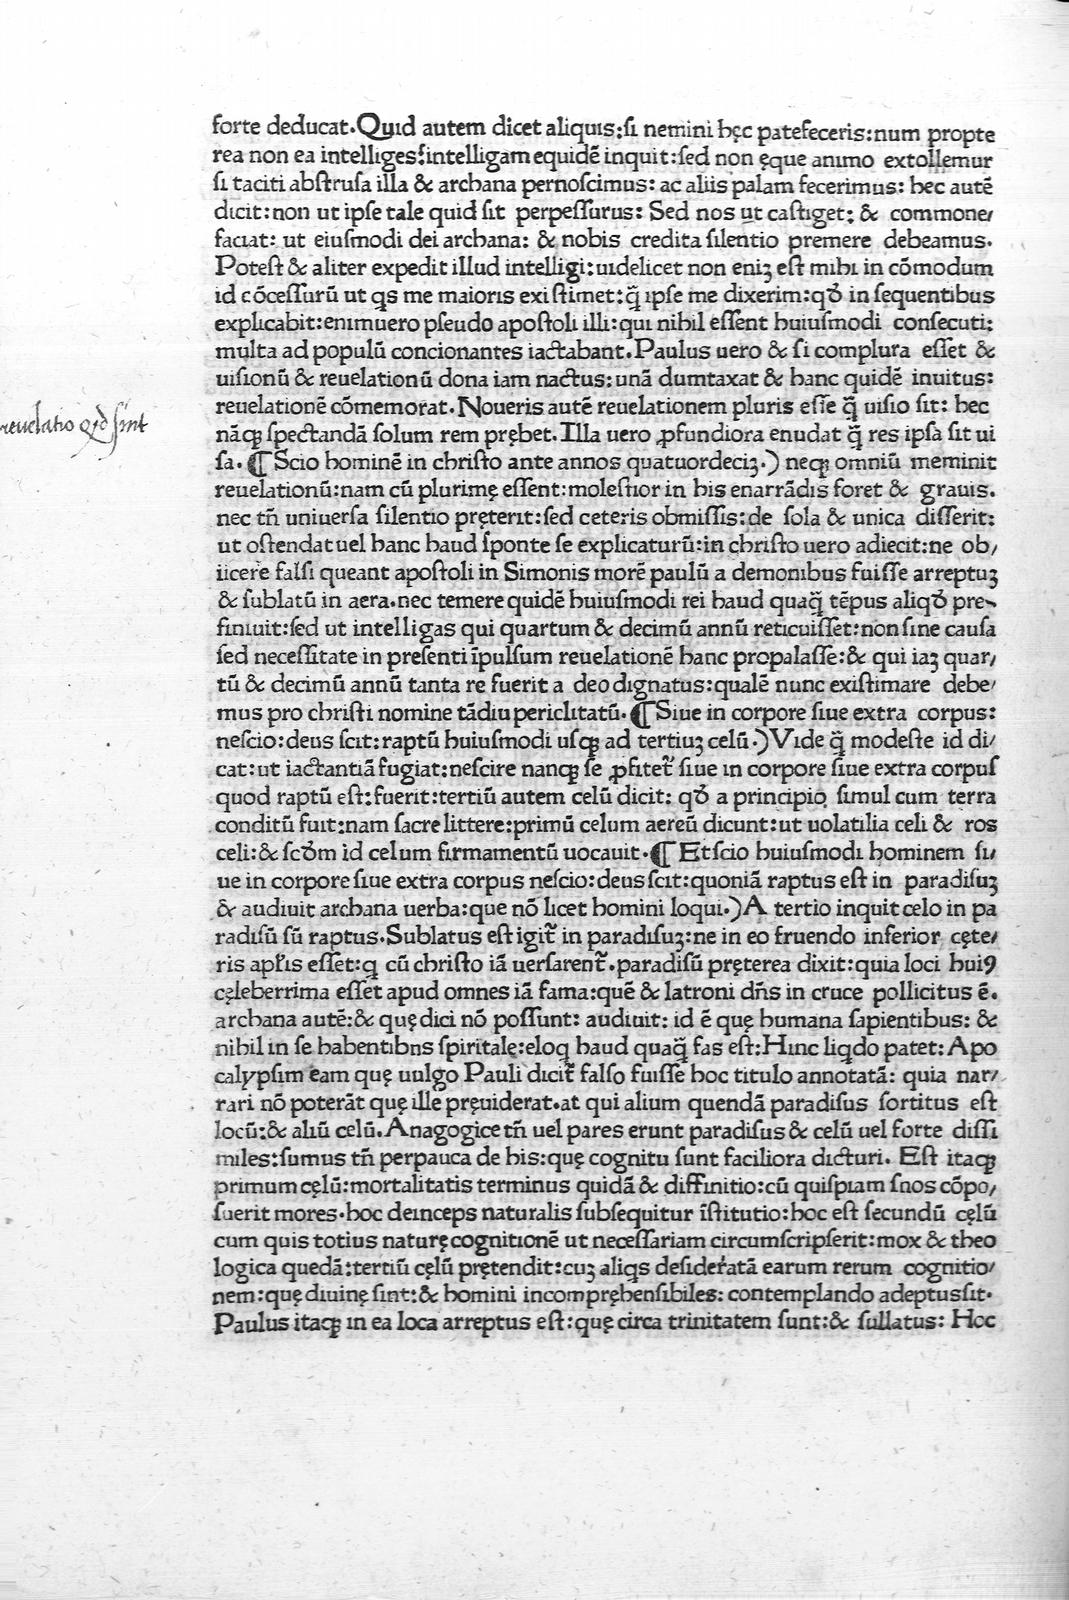 forte deducat.Quid autem dicet aliquis:ſi nemini hęc patefeceris:num propte
rea non ea intelliges?intelligam equidē inquit:ſed non ęque animo extollemur
ſi taciti abſtruſa illa & archana pernoſcimus: ac aliis palam fecerimus: hec autē
dicit:non ut ipſe tale quid ſit perpeſſurus: Sed nos ut caſtiget: & commone/
faciat: ut eiuſmodi dei archana: & nobis credita ſilentio premere debeamus.
Poteſt & aliter expedit illud intelligi:uidelicet non eniꝫ eſt mihi in cōmodum
id cōceſſurū ut qs me maioris exiſtimet:q̄ ipſe me dixerim:qđ in ſequentibus
explicabit:enimuero pſeudo apoſtoli illi:qui nihil eſſent huiuſmodi conſecuti:
multa ad populū concionantes iactabant.Paulus uero & ſi complura eſſet &
uiſionū & reuelationū dona iam nactus:unā dumtaxat & hanc quidē inuitus:
reuelationē cōmemorat.Noueris autē reuelationem pluris eſſe q̄ uiſio ſit: hec
reuelatio qđ ſint
nāqꝫ ſpectandā ſolum rem prębet.Illa uero ꝓfundiora enudat q̄ res ipſa ſit ui
ſa.¶Scio hominē in chriſto ante annos quatuordeciꝫ.) neqꝫ omniū meminit
reuelationū:nam cū plurimę eſſent:moleſtior in his enarrādis foret & grauis.
nec tn̄ uniuerſa ſilentio pręterit:ſed ceteris obmiſſis:de ſola & unica diſſerit:
ut oſtendat uel hanc haud ſponte ſe explicaturū:in chriſto uero adiecit:ne ob/
iicere falſi queant apoſtoli in Simonis morē paulū a demonibus fuiſſe arreptuꝫ
& ſublatū in aera.nec temere quidē huiuſmodi rei haud quaq̄ tēpus aliqđ pre/
finiuit:ſed ut intelligas qui quartum & decimū annū reticuiſſet:non ſine cauſa
ſed neceſſitate in preſenti īpulſum reuelationē hanc propalaſſe:& qui iaꝫ quar/
tū & decimū annū tanta re fuerit a deo dignatus:qualē nunc exiſtimare debe/
mus pro chriſti nomine tādiu periclitatū.¶Siue in corpore ſiue extra corpus:
neſcio:deus ſcit:raptū huiuſmodi uſqꝫ ad tertiuꝫ celū.)Vide q̄ modeſte id di/
cat:ut iactantiā fugiat:neſcire nanqꝫ ſe ꝓfitet̄ ſiue in corpore ſiue extra corpuſ
quod raptū eſt:fuerit:tertiū autem celū dicit: qđ a principio ſimul cum terra
conditū fuit:nam ſacre littere:primū celum aereū dicunt:ut uolatilia celi & ros
celi:& ſcđm id celum firmamentū uocauit.¶Et ſcio huiuſmodi hominem ſi/
ue in corpore ſiue extra corpus neſcio:deus ſcit:quoniā raptus eſt in paradiſuꝫ
& audiuit archana uerba:que nō licet homini loqui.)A tertio inquit celo in pa
radiſū ſū raptus.Sublatus eſt igit̄ in paradiſuꝫ:ne in eo fruendo inferior cęte/
ris apl̄is eſſet:q cū chriſto iā uerſarent̄.paradiſū pręterea dixit:quia loci huiꝰ
cęleberrima eſſet apud omnes iā fama:quē & latroni dn̄s in cruce pollicitus ē.
archana autē:& quę dici nō poſſunt: audiuit: id ē quę humana ſapientibus: &
nihil in ſe habentibns ſpiritalę:eloq haud quaq̄ fas eſt:Hinc liqdo patet:Apo
calypſim eam quę uulgo Pauli dicit̄ falſo fuiſſe hoc titulo annotatā: quia nar/
rari nō poterāt quę ille pręuiderat.at qui alium quendā paradiſus ſortitus eſt
locū:& aliū celū.Anagogice tn̄ uel pares erunt paradiſus & celū uel forte diſſi
miles:ſumus tn̄ perpauca de his:quę cognitu ſunt faciliora dicturi. Eſt itaqꝫ
primum cęlū:mortalitatis terminus quidā & diffinitio:cū quiſpiam ſnos cōpo/
ſuerit mores.hoc deinceps naturalis ſubſequitur īſtitutio:hoc eſt ſecundū cęlū
cum quis totius naturę cognitionē ut neceſſariam circumſcripſerit:mox & theo
logica quedā:tertiū cęlū prętendit:cuꝫ aliqs deſideratā earum rerum cognitio/
nem:quę diuinę ſint:& homini incompręhenſibiles: contemplando adeptus ſit.
Paulus itaqꝫ in ea loca arreptus eſt:quę circa trinitatem ſunt:& ſullatus: Hoc